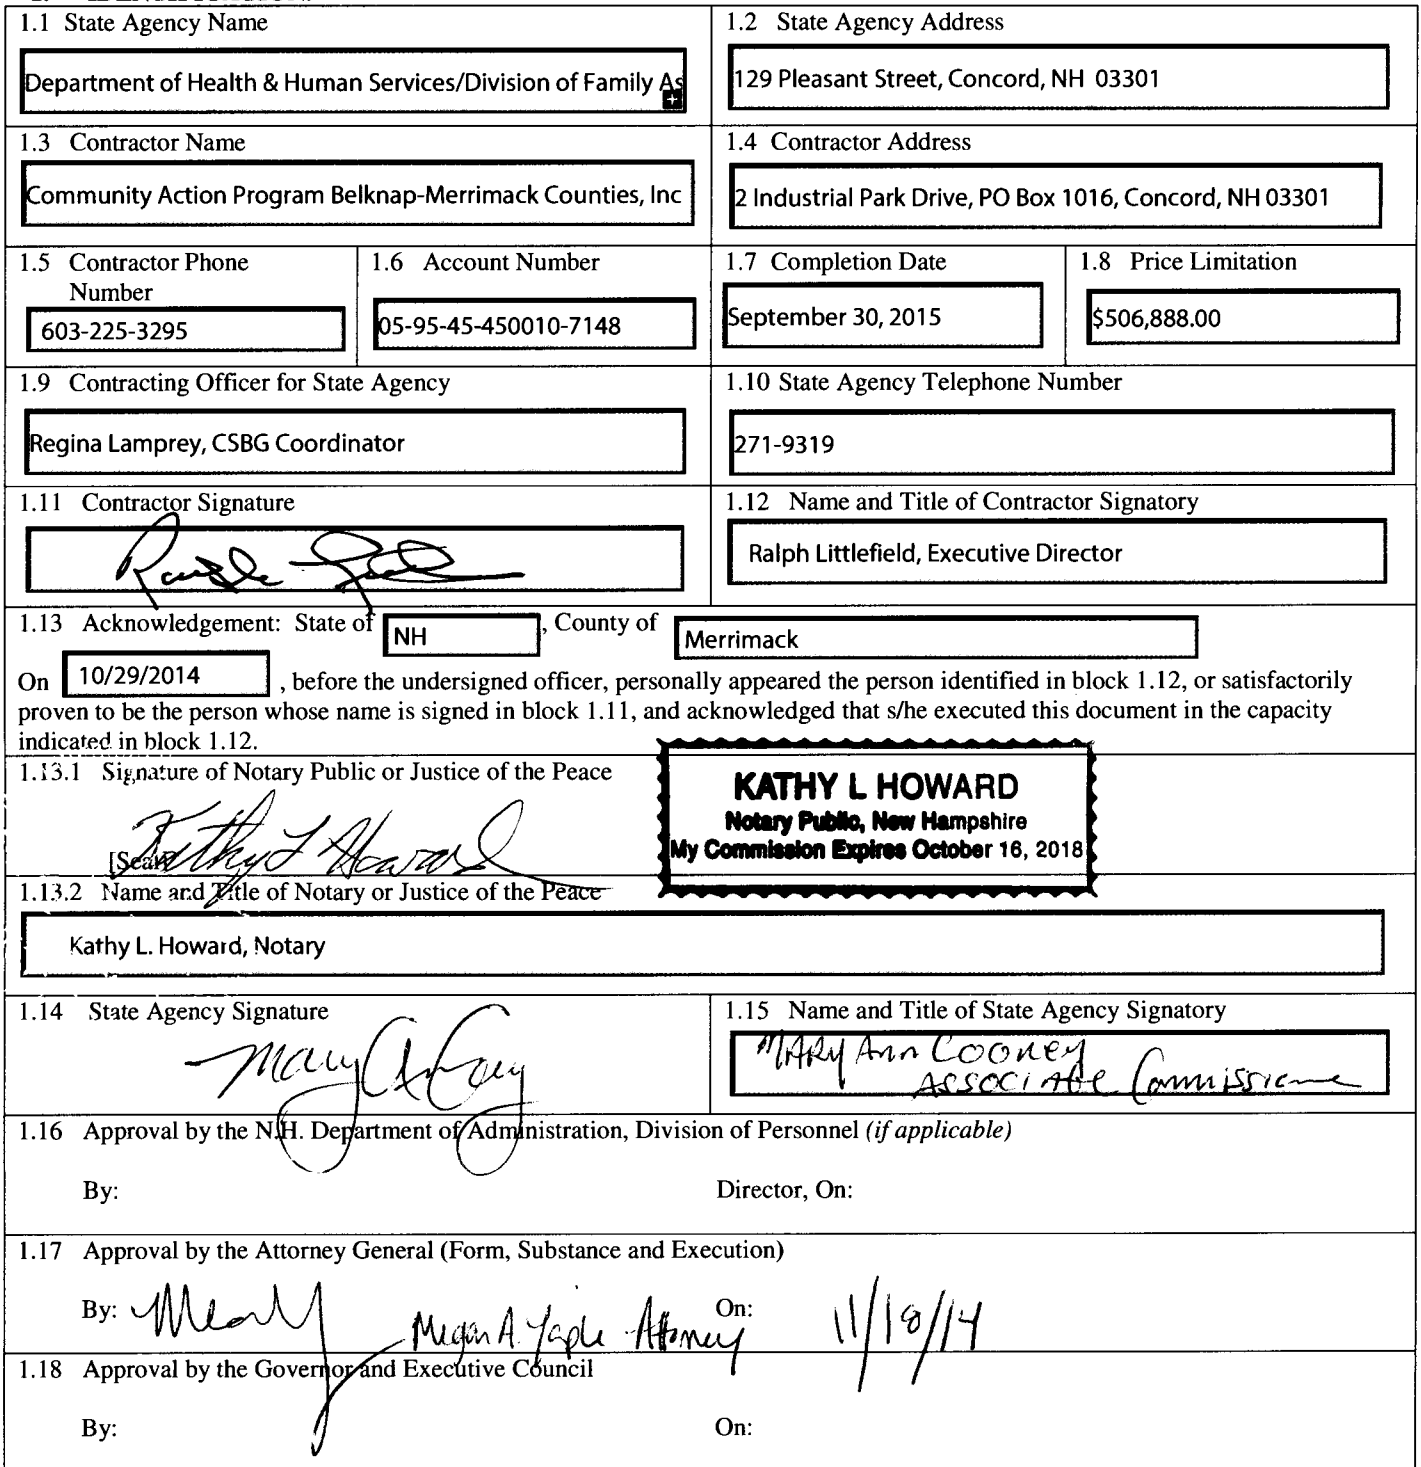 1.1 State Agency Name
1.2 State Agency Address
Department of Health & Human Services/Division of Family As
129 Pleasant Street, Concord, NH 03301
1.3 Contractor Name
1.4 Contractor Address
Community Action Program Belknap-Merrimack Counties, Inc
2 Industrial Park Drive, PO Box 1016, Concord, NH 03301
1.5 Contractor Phone
Number
1.6 Account Number
1.7 Completion Date
1.8 Price Limitation
603-225-3295
05-95-45-450010-7148
September 30, 2015
$506,888.00
1.9 Contracting Officer for State Agency
1.10 State Agency Telephone Number
Regina Lamprey, CSBG Coordinator
271-9319
1.11 Contractor Signature
1.12 Name and Title of Contractor Signatory
Ralph Littlefield, Executive Director
1.13 Acknowledgement: State of NH, County of Merrimack
On 10/29/2014, before the undersigned officer, personally appeared the person identified in block 1.12, or satisfactorily
proven to be the person whose name is signed in block 1.11, and acknowledged that s/he executed this document in the capacity
indicated in block 1.12.
1.13.1 Signature of Notary Public or Justice of the Peace
KATHY L HOWARD
Notary Public, New Hampshire
My Commission Expires October 16, 2018
Kathy L Howard
[Seal]
1.13.2 Name and Title of Notary or Justice of the Peace
Kathy L. Howard, Notary
1.14 State Agency Signature
1.15 Name and Title of State Agency Signatory
Mary Ann Cooney
Associate Commissioner
1.16 Approval by the N.H. Department of Administration, Division of Personnel (if applicable)
By:
Director, On:
1.17 Approval by the Attorney General (Form, Substance and Execution)
By: Megan A. Yaple Attorney On: 11/18/14
1.18 Approval by the Governor and Executive Council
By:
On: